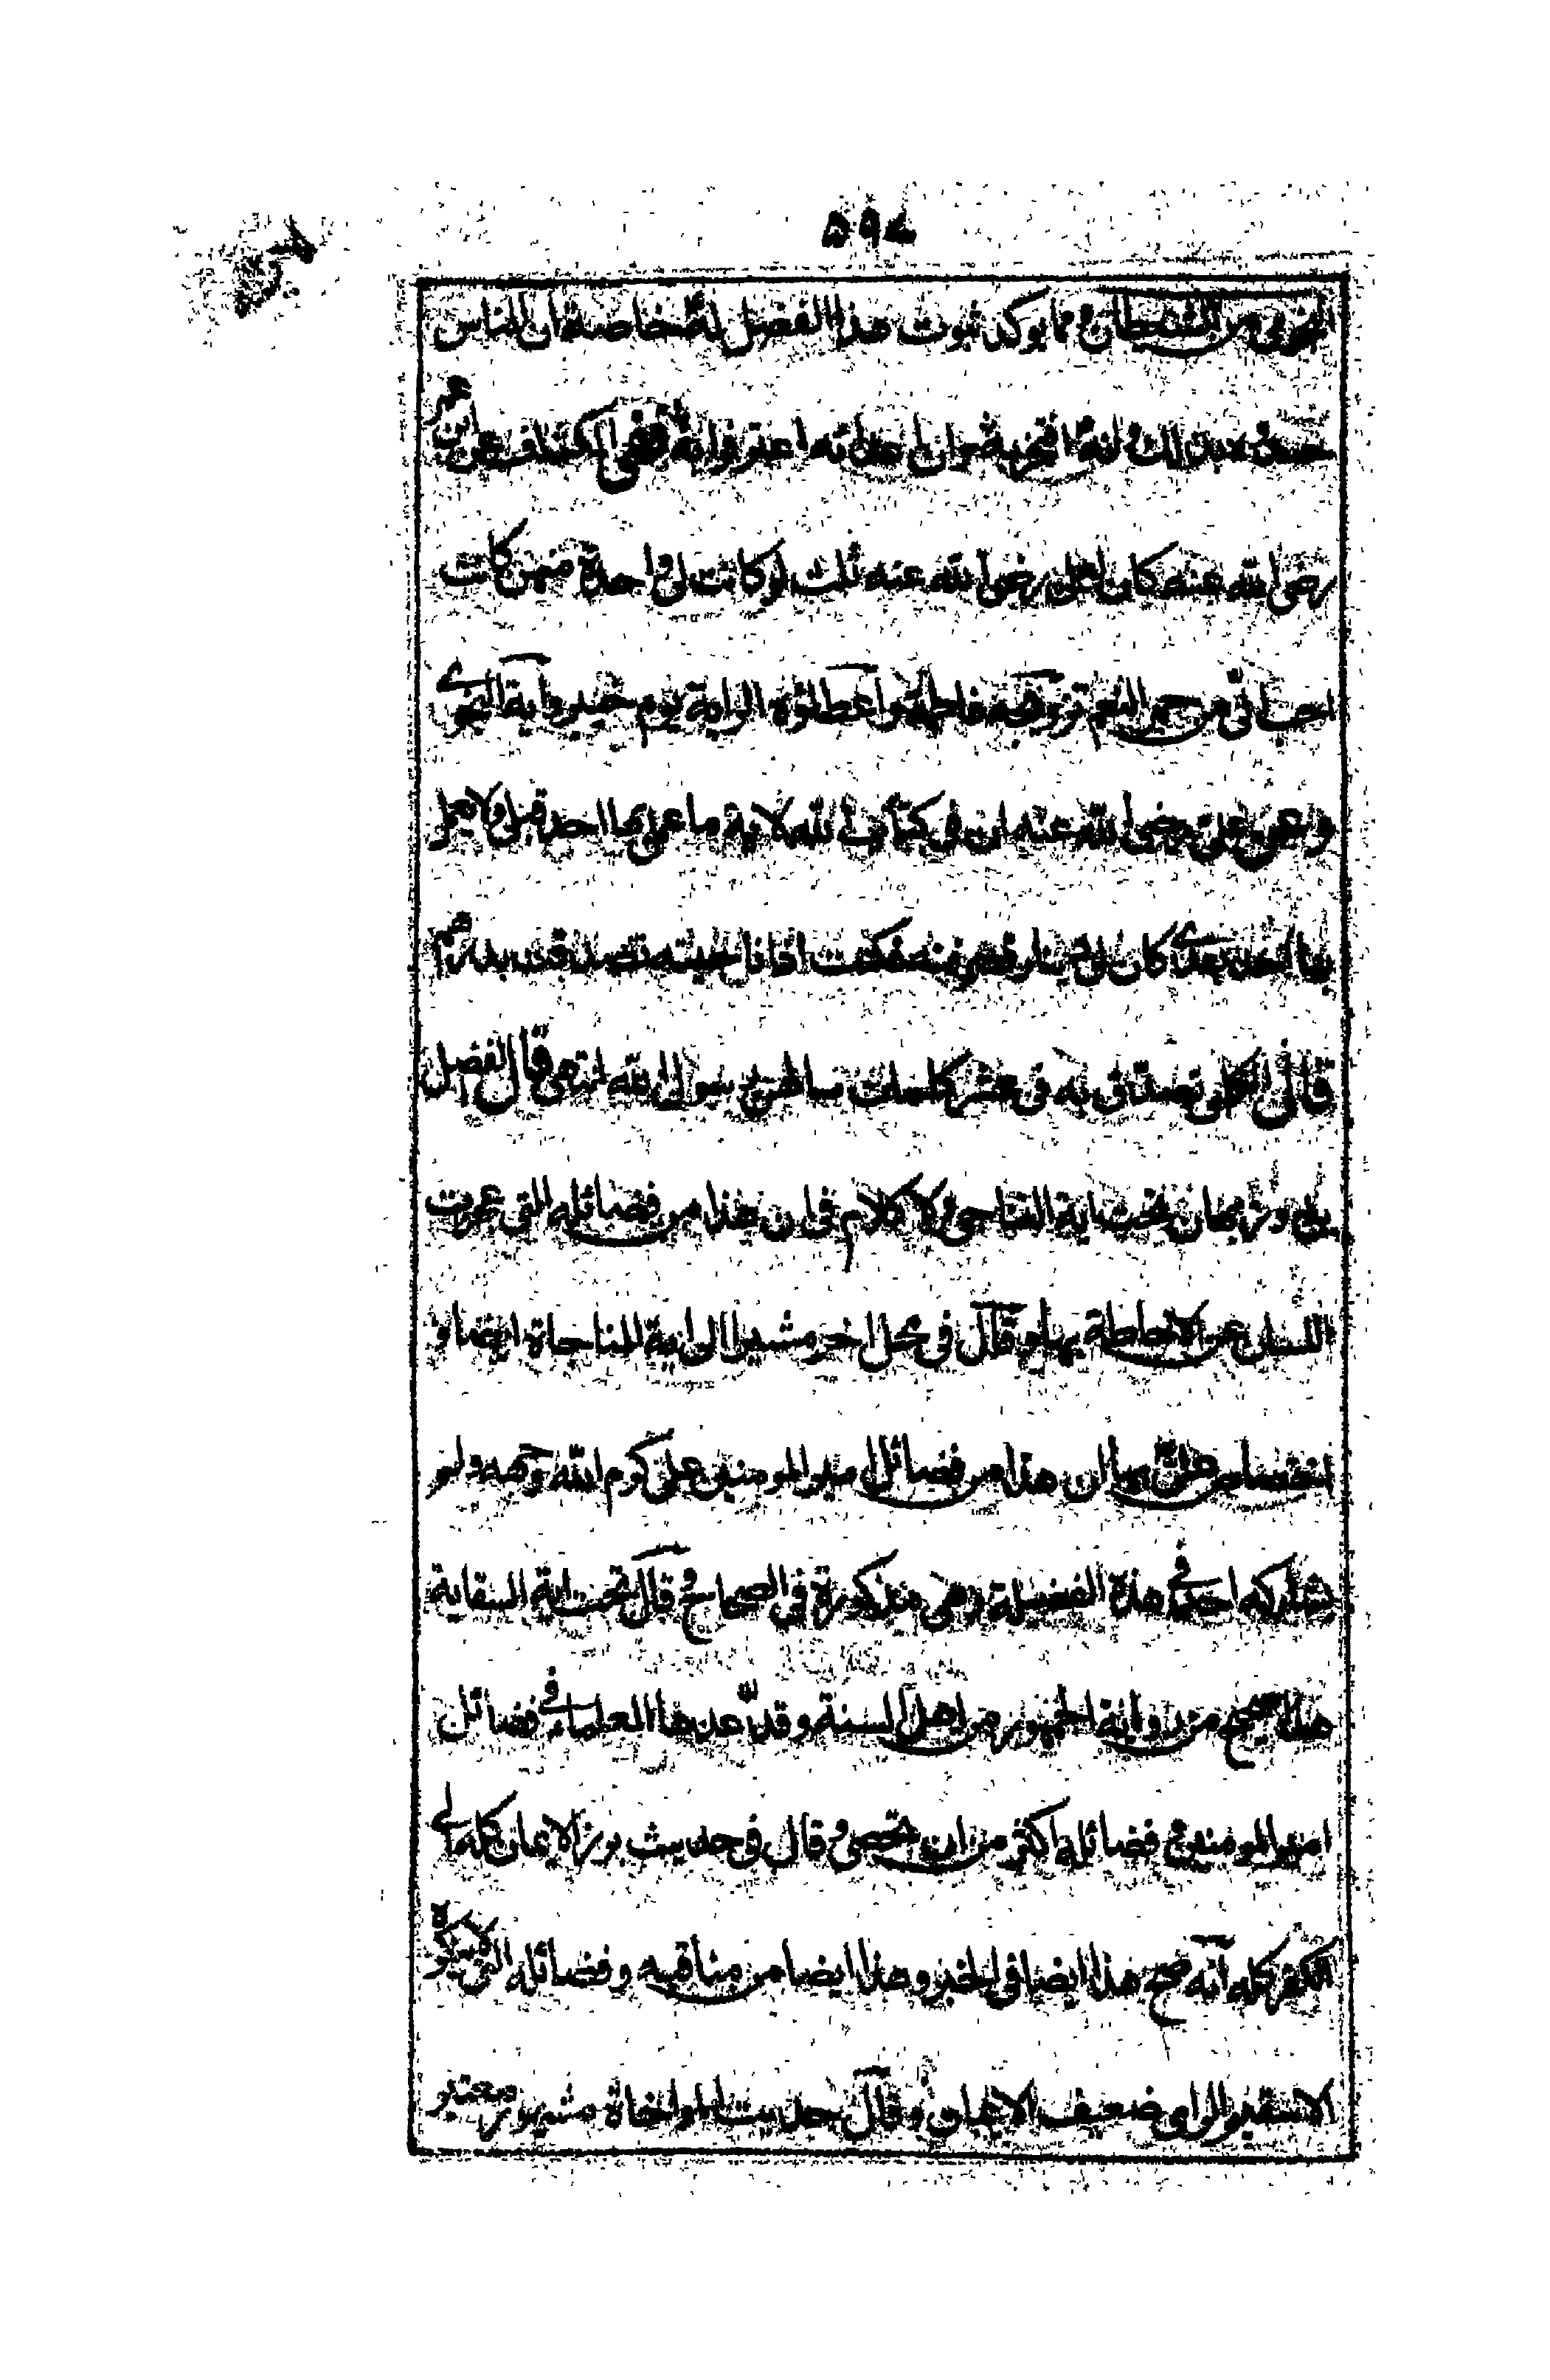 ۵۹۷
النجوى من الشيطان و مما يوكد ثبوت هذا الفضل له خاصة ان الناس
حسدوه لذلك و انه افتخر به و ان اعدائه اعترفوا به ففى الكشاف عن ابن عمر
رضى الله عنه كان لعلى رضى الله عنه ثلث لو كانت لى واحدة منهن كانت
احب الىّ من حمر النعم تزويجه فاطمة و اعطاؤه الراية يوم خيبر و آية النجوى
و عن على رضى الله عنه ان فى كتاب الله لاية ما عمل بها احد قبلى ولا يعمل
بها احد بعدى كان لى دينار فصرفته فكنت اذا ناجيته تصدقت بدرهم
قال الكلبى تصدق به فى عشر كلمات سالهن رسول الله انتهى قال الفضل
بن روزبهان تحت اية التناجى ولا كلام فى ان هذا من فضائله التى عجزت
اللسان عن الاحاطة بها و قال فى محل اخر مشيرا الى اية المناجاة ايضا و
اختصاص على بها ان هذا من فضائل امير المومنين على كرم الله وجهه ولم
يشاركه احد فى هذه الفضيلة وهى مذكورة فى الصحاح و قال تحت اية السقاية
هذا صحيح من رواية الجمهور من اهل السنة و قد عدها العلماء فى فضائل
امير المومنين و فضائله اكثر من ان تحصى و قال فى حديث برز الايمان كله الى
الكفر كله انه صح هذا ايضا فى الخبر و هذا ايضا من مناقبه و فضائله التى لا ينكره
الا سقيم الراى ضعيف الايمان و قال حديث المواخاة مشهور معتبر